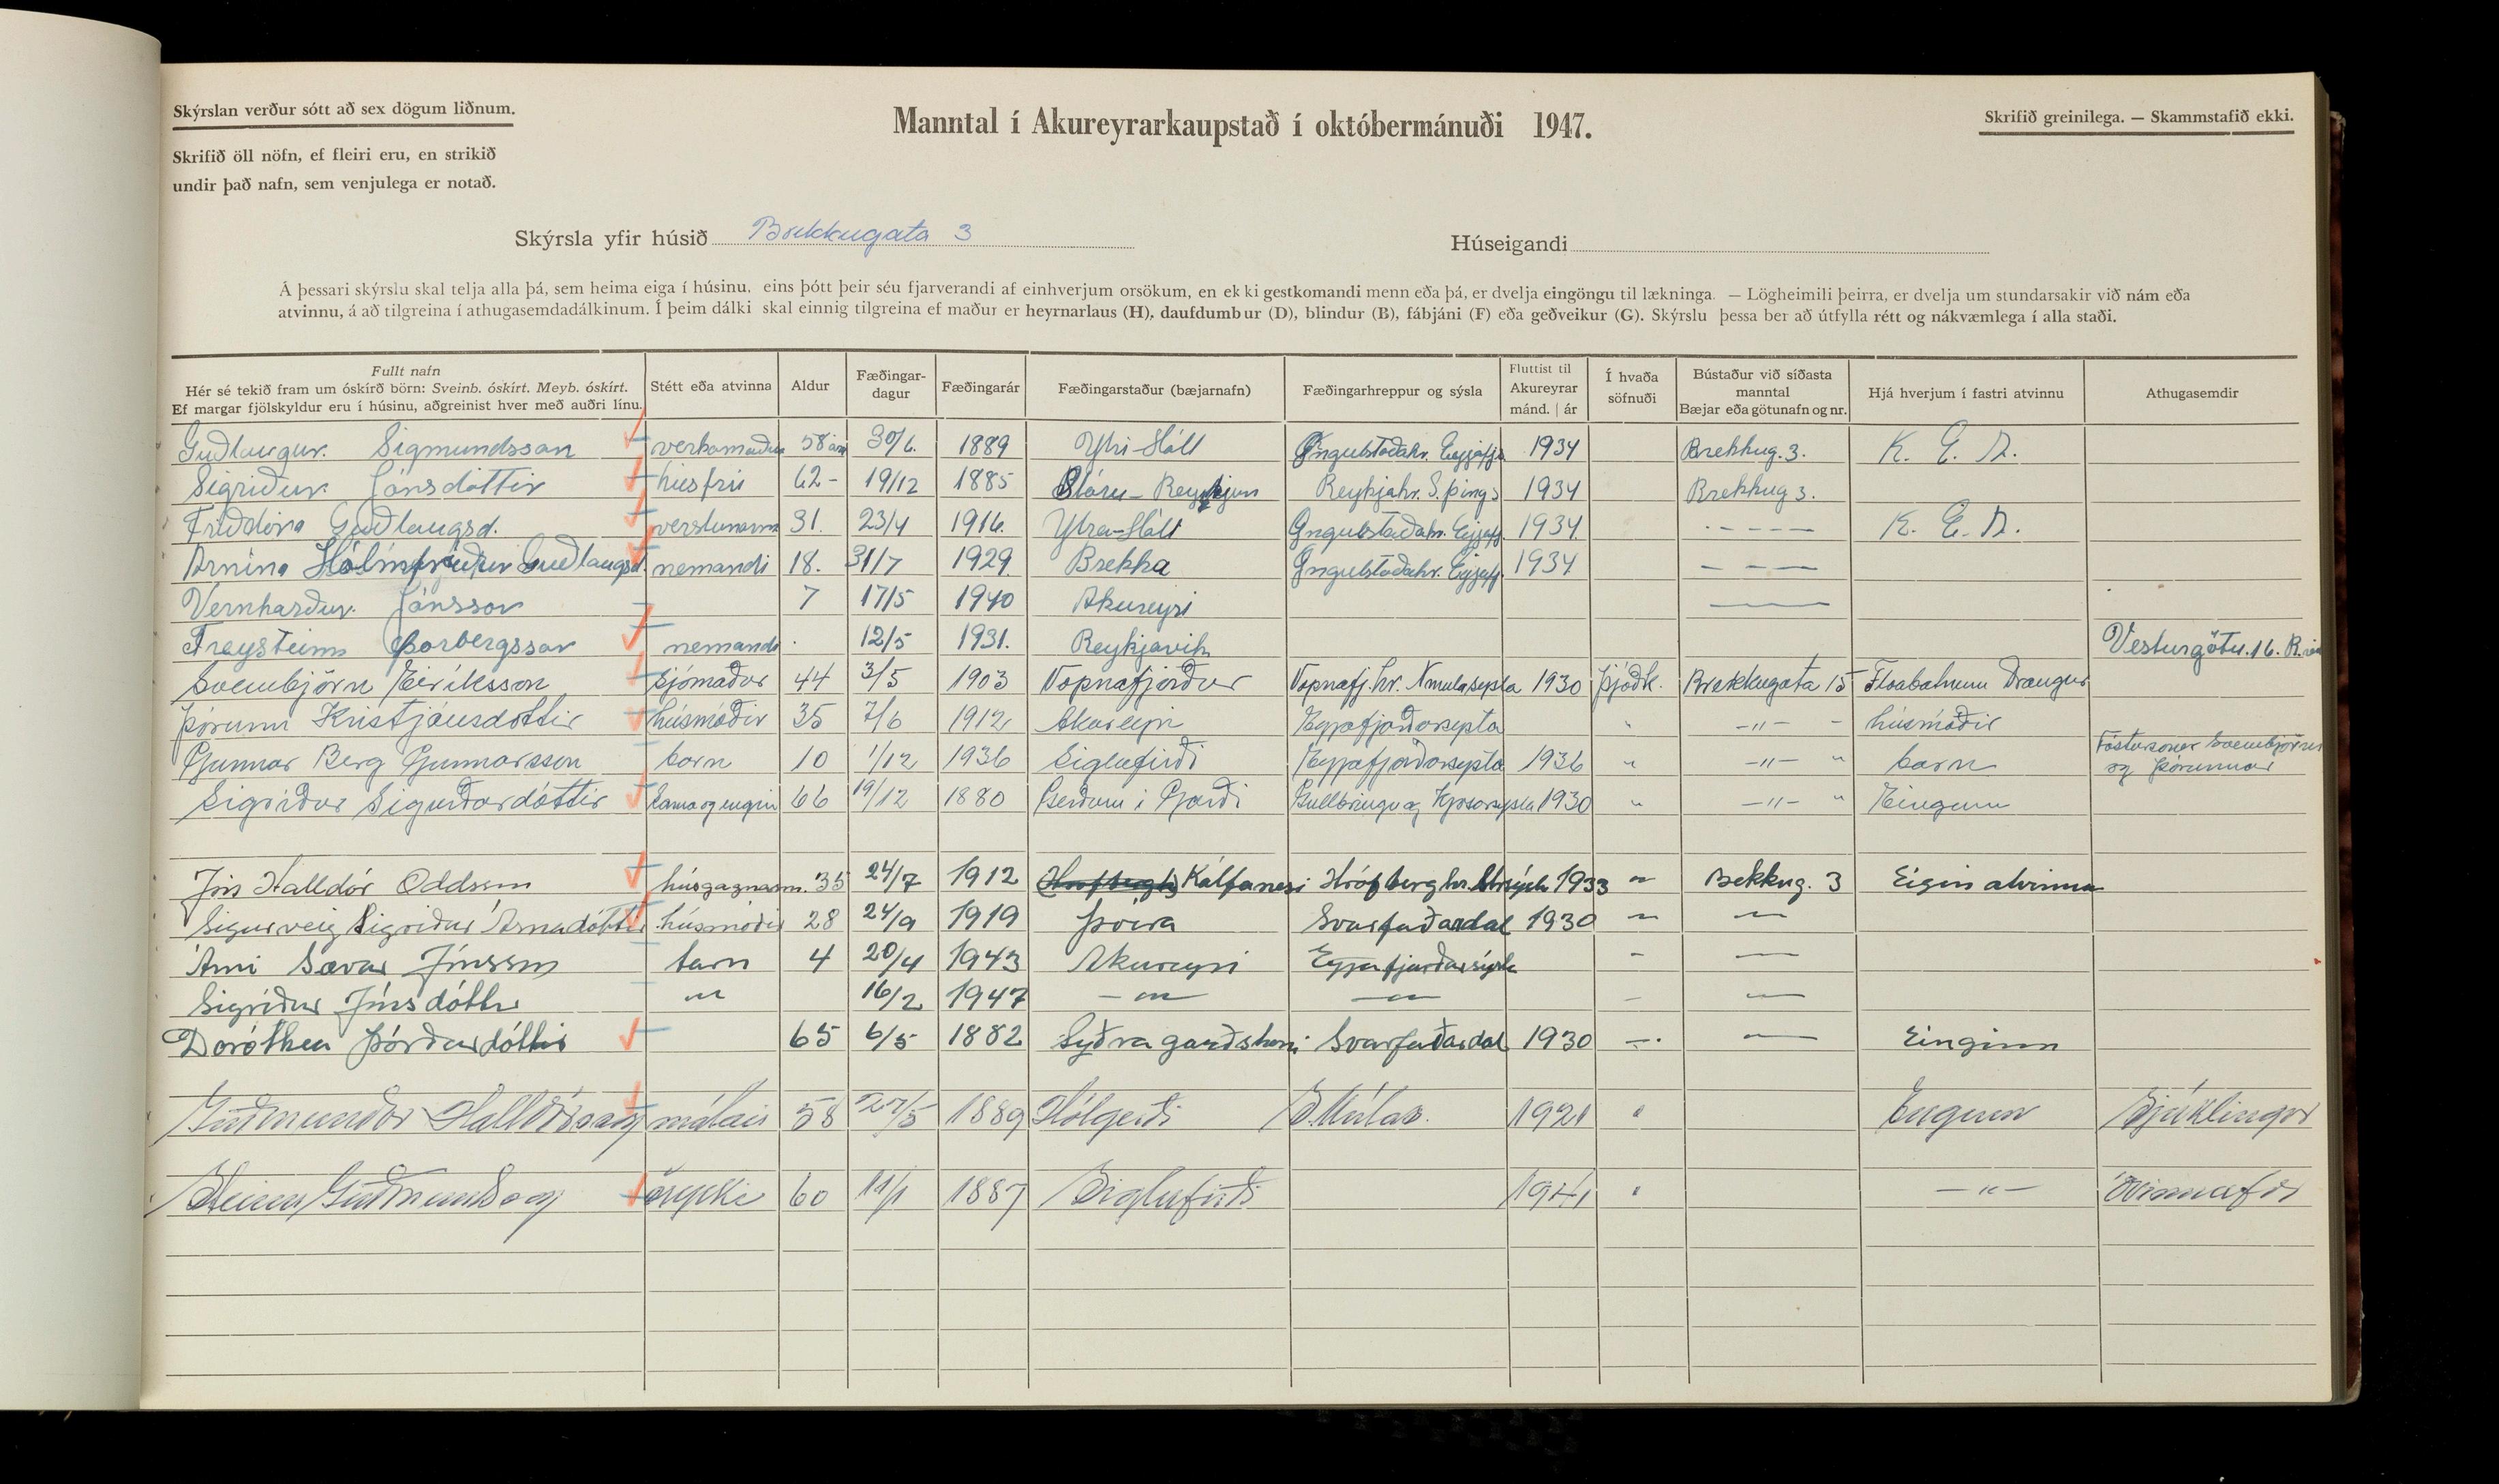 Skýrslan verður sótt að sex dögum liðnum.
Manntal í Akureyrarkaupstað í októbermánuði 1947.
Skrifið greinilega. — Skammstafið ekki.
Skrifið öll nöfn, ef fleiri eru, en strikið
undir það nafn, sem venjulega er notað.
Skýrsla yfir húsið Brekkugata 3
Húseigandi
Á þessari skýrslu skal telja alla þá, sem heima eiga í húsinu, eins þótt þeir séu fjarverandi af einhverjum orsökum, en ekki gestkomandi menn eða þá, er dvelja eingöngu til lækninga. — Lögheimili þeirra, er dvelja um stundarsakir við nám eða
atvinnu, á að tilgreina í athugasemdadálkinum. Í þeim dálki skal einnig tilgreina ef maður er heyrnarlaus (H), daufdumbur (D), blindur (B), fábjáni (F) eða geðveikur (G). Skýrslu þessa ber að útfylla rétt og nákvæmlega í alla staði.
Fullt nafn
Hér sé tekið fram um óskírð börn: Sveinb. óskírt. Meyb. óskírt.
Ef margar fjölskyldur eru í húsinu, aðgreinist hver með auðri línu.
Stétt eða atvinna
Aldur
Fæðingar-
dagur
Fæðingarár
Fæðingarstaður (bæjarnafn)
Fæðingarhreppur og sýsla
Fluttist til
Akureyrar
mánd. | ár
Í hvaða
söfnuði
Bústaður við síðasta
manntal
Bæjar eða götunafn og nr.
Hjá hverjum í fastri atvinnu
Athugasemdir
Guðlaugur Sigmundsson verkamaður 58 ára 30/6. 1889 Ytri-Hóll Öngulstaðahr. Eyjafj. 1934 Brekkug. 3. K. E. A.
Sigríður Jónsdóttir húsfrú 62 - 19/12 1885 Stóru-Reykjum Reykjahr. S. þings 1934 Brekkug 3.
Friðdóra Guðlaugsd. 31. 23/4 1916. Ytra-Hóll Öngulstaðahr. Eyjafj. 1934 - - - - K. E. A.
Árnína Hólmfríður Guðlaugsd. nemandi 18. 31/7 1929. Brekka Öngulstaðahr. Eyjafj. 1934 - - -
Vernharður Jónsson 7 17/5 1940 Akureyri —
Freysteinn Þorbergsson nemandi 12/5 1931. Reykjavík Vesturgötu. 16.
Sveinbjörn Eiríksson sjómaður 44 3/5 1903 Vopnafjörður Vopnafj. hr. N múlasýsla 1930 Þjóðk. Brekkugata 15 Flóabátnum Drangur
Þórunn Kristjánsdóttir húsmóðir 35 7/6 1912 Akureyri Eyjafjarðarsýsla " —"— " húsmóðir
Gunnar Berg Gunnarsson barn 10 1/12 1936 Siglufirði Eyjafjarðarsýsla 1936 " —"— " barn Fóstursonur Sveinbjörns
og Þórunnar
Sigríður Sigurðardóttir 66 19/12 1880 Gerðum í Garði Gullbringu og Kjósarsýsla 1930 " —"— " Eingum
Jón Halldór Oddsson húsgagnasm. 35 24/7 1912 Kálfanesi Hrófberghr. Strsýsla 1933 " Bekkug. 3 Eigin atvinna
Sigurveig Sigríður Árnadóttir húsmóðir 28 24/9 1919 Þóra Svarfaðardal 1930 " —
Árni Sævar Jónsson barn 4 20/4 1943 Akureyri Eyjafjarðarsýsla - —
Sigríður Jónsdóttir " 16/2 1947 —"— —"— - —
Dorothea Þórðardóttir 65 6/5 1882 Syðra garðshorni Svarfaðardal 1930 -. — Einginn
Guðmundur Halldórsson málari 58 27/5 1889 Hólgerði S. Múlas. 1921 " Engum Sjúklingur
Steinn Guðmundsson 60 11/1 1887 Siglufirði 1941 " —"— Óvinnufær